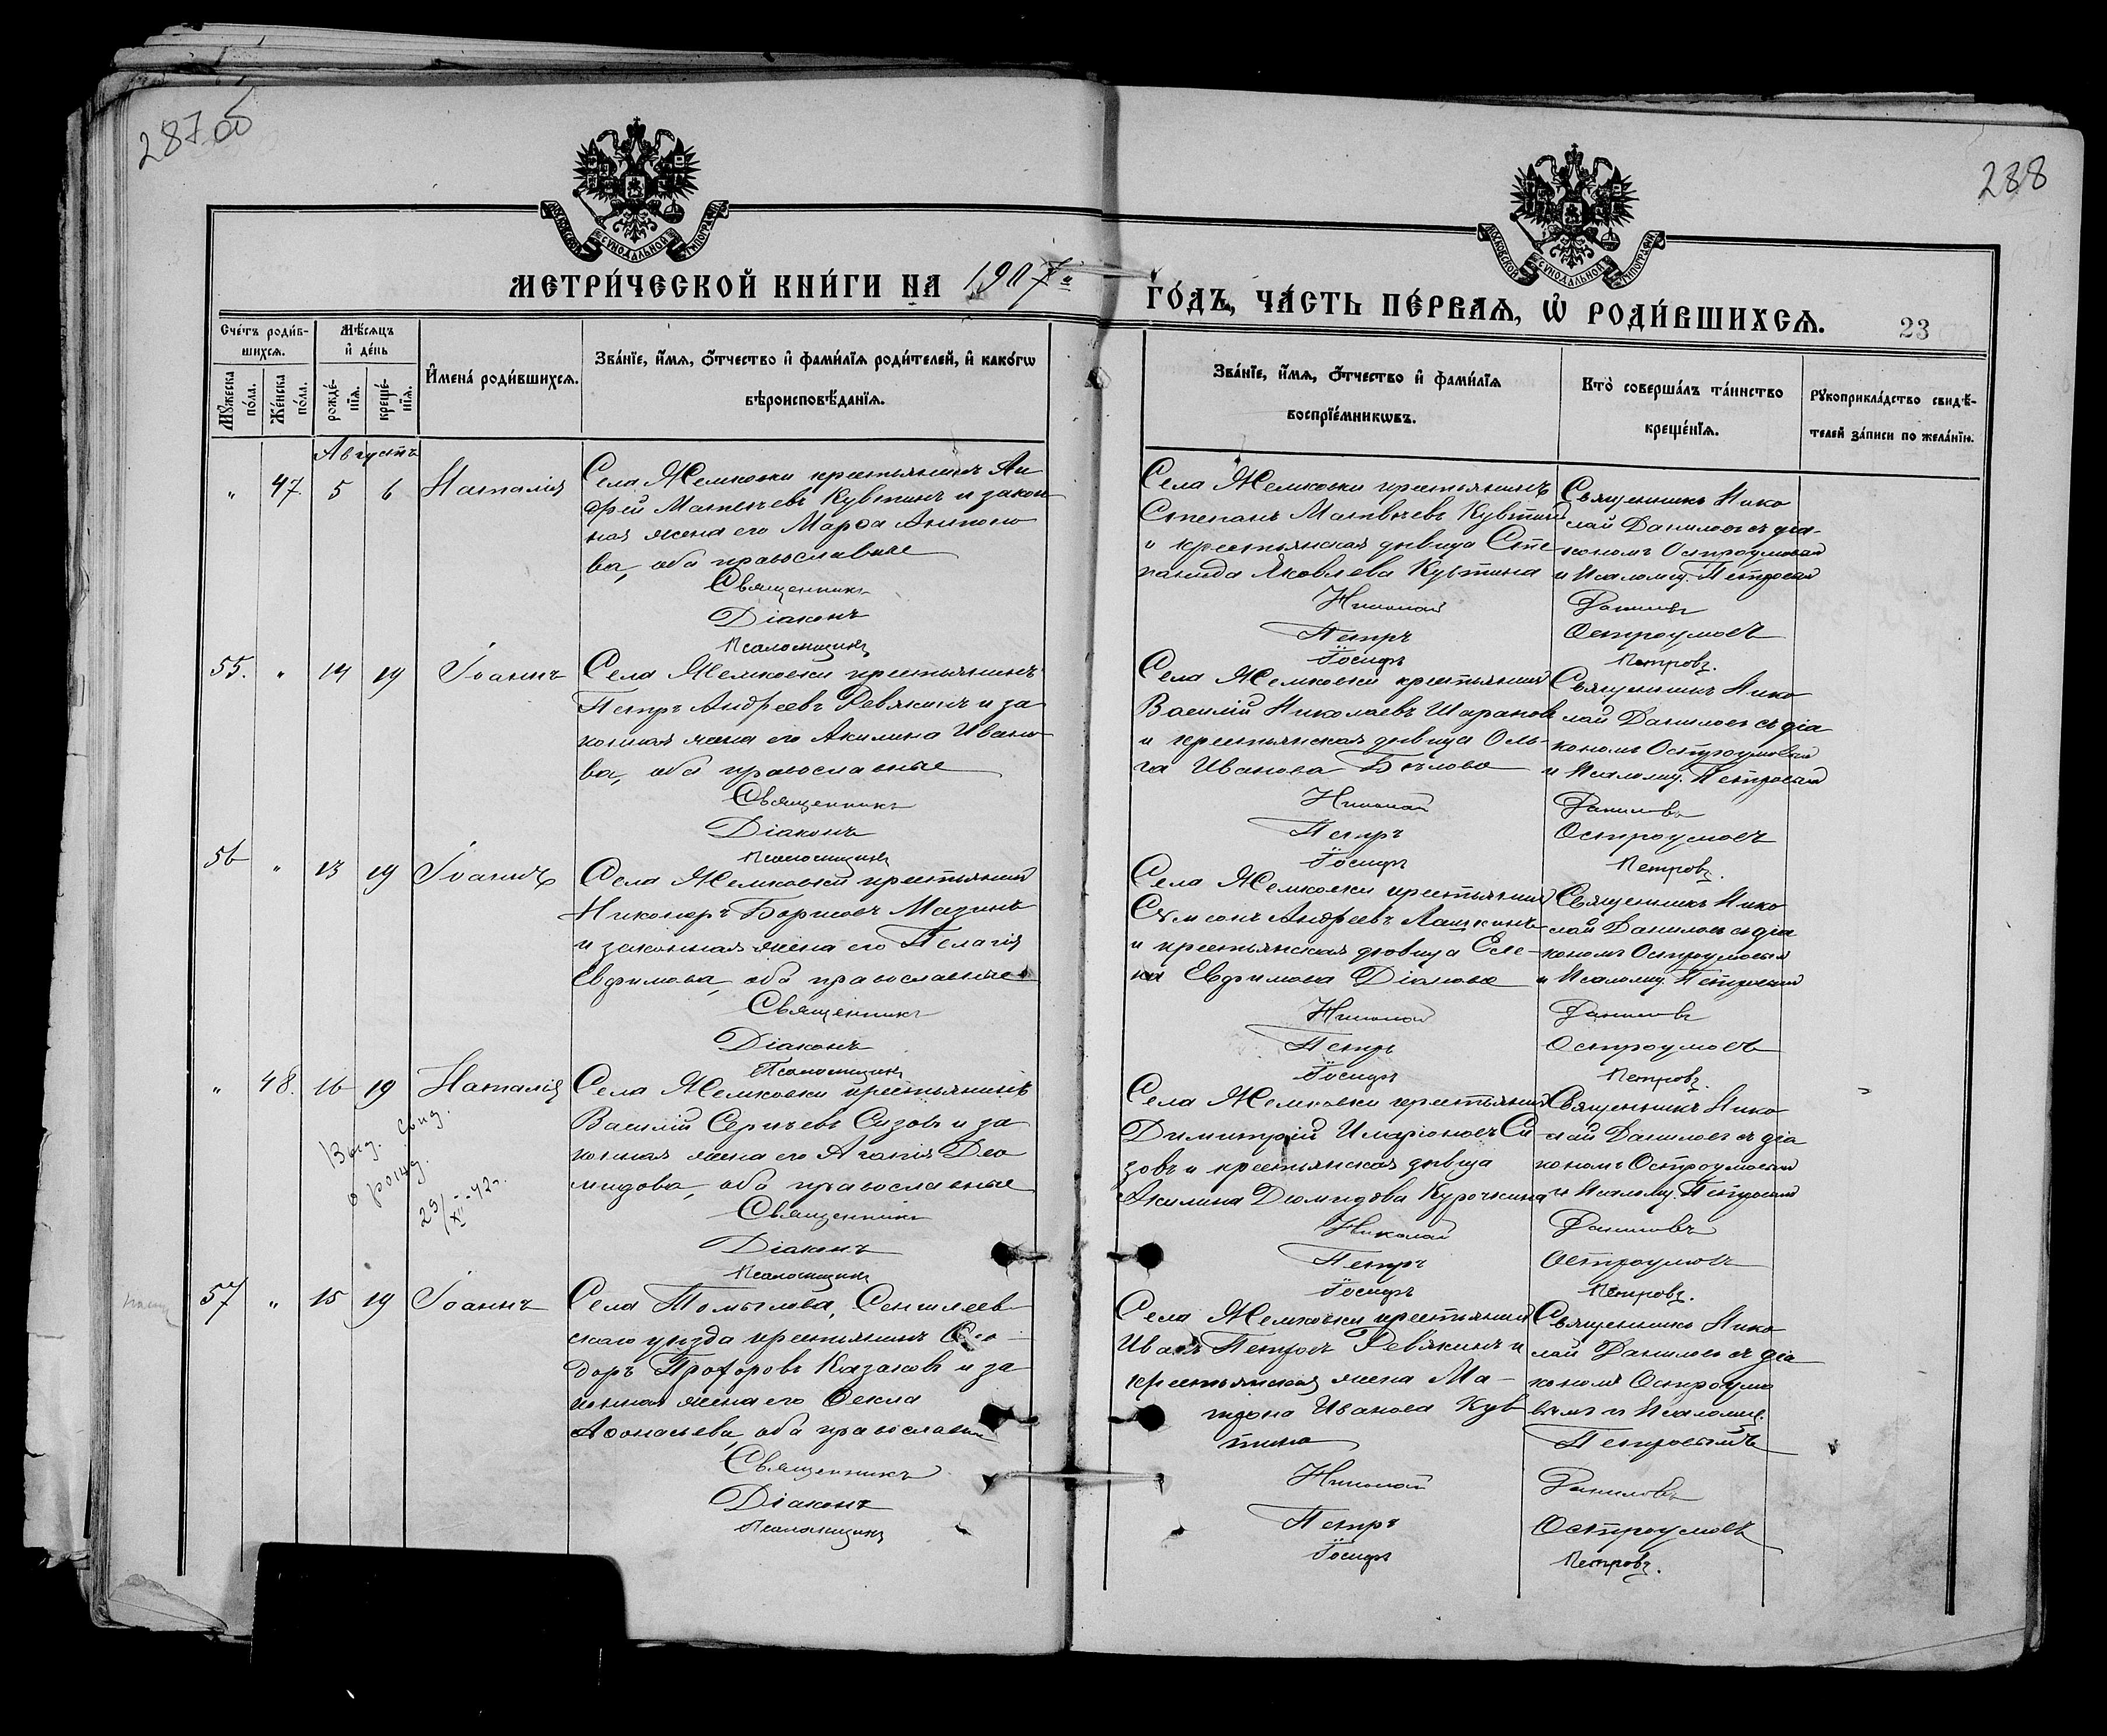 287 об
288
МОСКОВСКОЙ СѴНОДАЛЬНОЙ ТИПОГРАФІИ
МОСКОВСКОЙ СѴНОДАЛЬНОЙ ТИПОГРАФІИ
МЕТРИ́ЧЕСКОЙ КНИ́ГИ НА 1907й
ГО́ДЪ, ЧА́СТЬ ПЕ́РВАѦ, Ѡ҆ РОДИ́ВШИХСѦ.
23
Сче́тъ роди́в-
шихсѧ.
Мꙋ́жеска по́ла.
Же́нска по́ла.
Мѣ́сѧцъ
и҆ де́нь
рожде́-
нїѧ.
креще́-
нїѧ.
И҆мена̀ роди́вшихсѧ.
Зва́нїе, и҆́мѧ, ѻ҆́тчество и҆ фами́лїѧ роди́телей, и҆ како́гѡ
вѣроисповѣ́данїѧ.
Зва́нїе, и҆́мѧ, ѻ҆́тчество и҆ фами́лїѧ
воспрїе́мникѡвъ.
Кто̀ соверша́лъ та́инство
креще́нїѧ.
Рꙋкоприкла́дство свидѣ́-
телей за́писи по жела́нїю.
Августъ
" 47. 5 6 Наталія
Села Жемковки крестьянинъ Ан
дрей Матвѣевъ Кувтинъ и закон
ная жена его Марѳа Антоно
ва, оба православные
Священникъ
Діаконъ
Псаломщикъ
Села Жемковки крестьянинъ
Степанъ Матвѣевъ Кувтинъ
и крестьянская дѣвица Сте
панида Яковлева Кувтина
Николай
Петръ
Іосифъ
Священникъ Нико
лай Даниловъ съ діа-
кономъ Остроумовымъ
и Псаломщ. Петровымъ
Даниловъ
Остроумовъ
Петровъ.
55. " 14 19 Іоаннъ
Села Жемковки крестьянинъ
Петръ Андреевъ Ревякинъ и за
конная жена его Акилина Ивано
ва, оба православные
Священникъ
Діаконъ
Псаломщикъ
Села Жемковки крестьянинъ
Василій Николаевъ Шарановъ
и крестьянская дѣвица Оль-
га Иванова Бѣлова
Николай
Петръ
Іосифъ
Священникъ Нико
лай Даниловъ съ діа
кономъ Остроумовымъ
и Псаломщ. Петровымъ
Даниловъ
Остроумовъ
Петровъ.
56 " 13 19 Іоаннъ
Села Жемковки крестьянинъ
Никоноръ Борисовъ Мазинъ
и законная жена его Пелагія
Евфимова, оба православные
Священникъ
Діаконъ
Псаломщикъ
Села Жемковки крестьянинъ
Сѵмеонъ Андреевъ Лашкинъ
и крестьянская дѣвица Еле-
на Евфимова Діанова
Николай
Петръ
Іосифъ
Священникъ Нико
лай Даниловъ съ діа
кономъ Остроумовымъ
и Псаломщ. Петровымъ
Даниловъ
Остроумовъ
Петровъ.
" 48. 16 19 Наталія
Выд. свид.
о рожд.
29/XII-42г.
Села Жемковки крестьянинъ
Василій Сергѣевъ Сизовъ и за
конная жена его Агапія Дио
мидова, оба православные
Священникъ
Діаконъ
Псаломщикъ
Села Жемковки крестьянинъ
Димитрій Иларіоновъ Си
зовъ и крестьянская дѣвица
Акилина Диомидова Курочкина
Николай
Петръ
Іосифъ
Священникъ Нико
лай Даниловъ съ діа
кономъ Остроумовымъ
и Псаломщ. Петровымъ
Даниловъ
Остроумовъ
Петровъ.
57 " 15 19 Іоаннъ
Села Томылова, Сенгилеев-
скаго уѣзда крестьянинъ Ѳео-
доръ Прохоровъ Казаковъ и за
конная жена его Ѳекла
Аѳонасьева, оба православные
Священникъ
Діаконъ
Псаломщикъ
Села Жемковки крестьянинъ
Иванъ Петровъ Ревякинъ и
крестьянская жена Ма-
трона Иванова Кув
тина
Николай
Петръ
Іосифъ
Священникъ Нико
лай Даниловъ съ діа
кономъ Остроумо
вымъ и Псаломщ.
Петровымъ
Даниловъ
Остроумовъ
Петровъ.